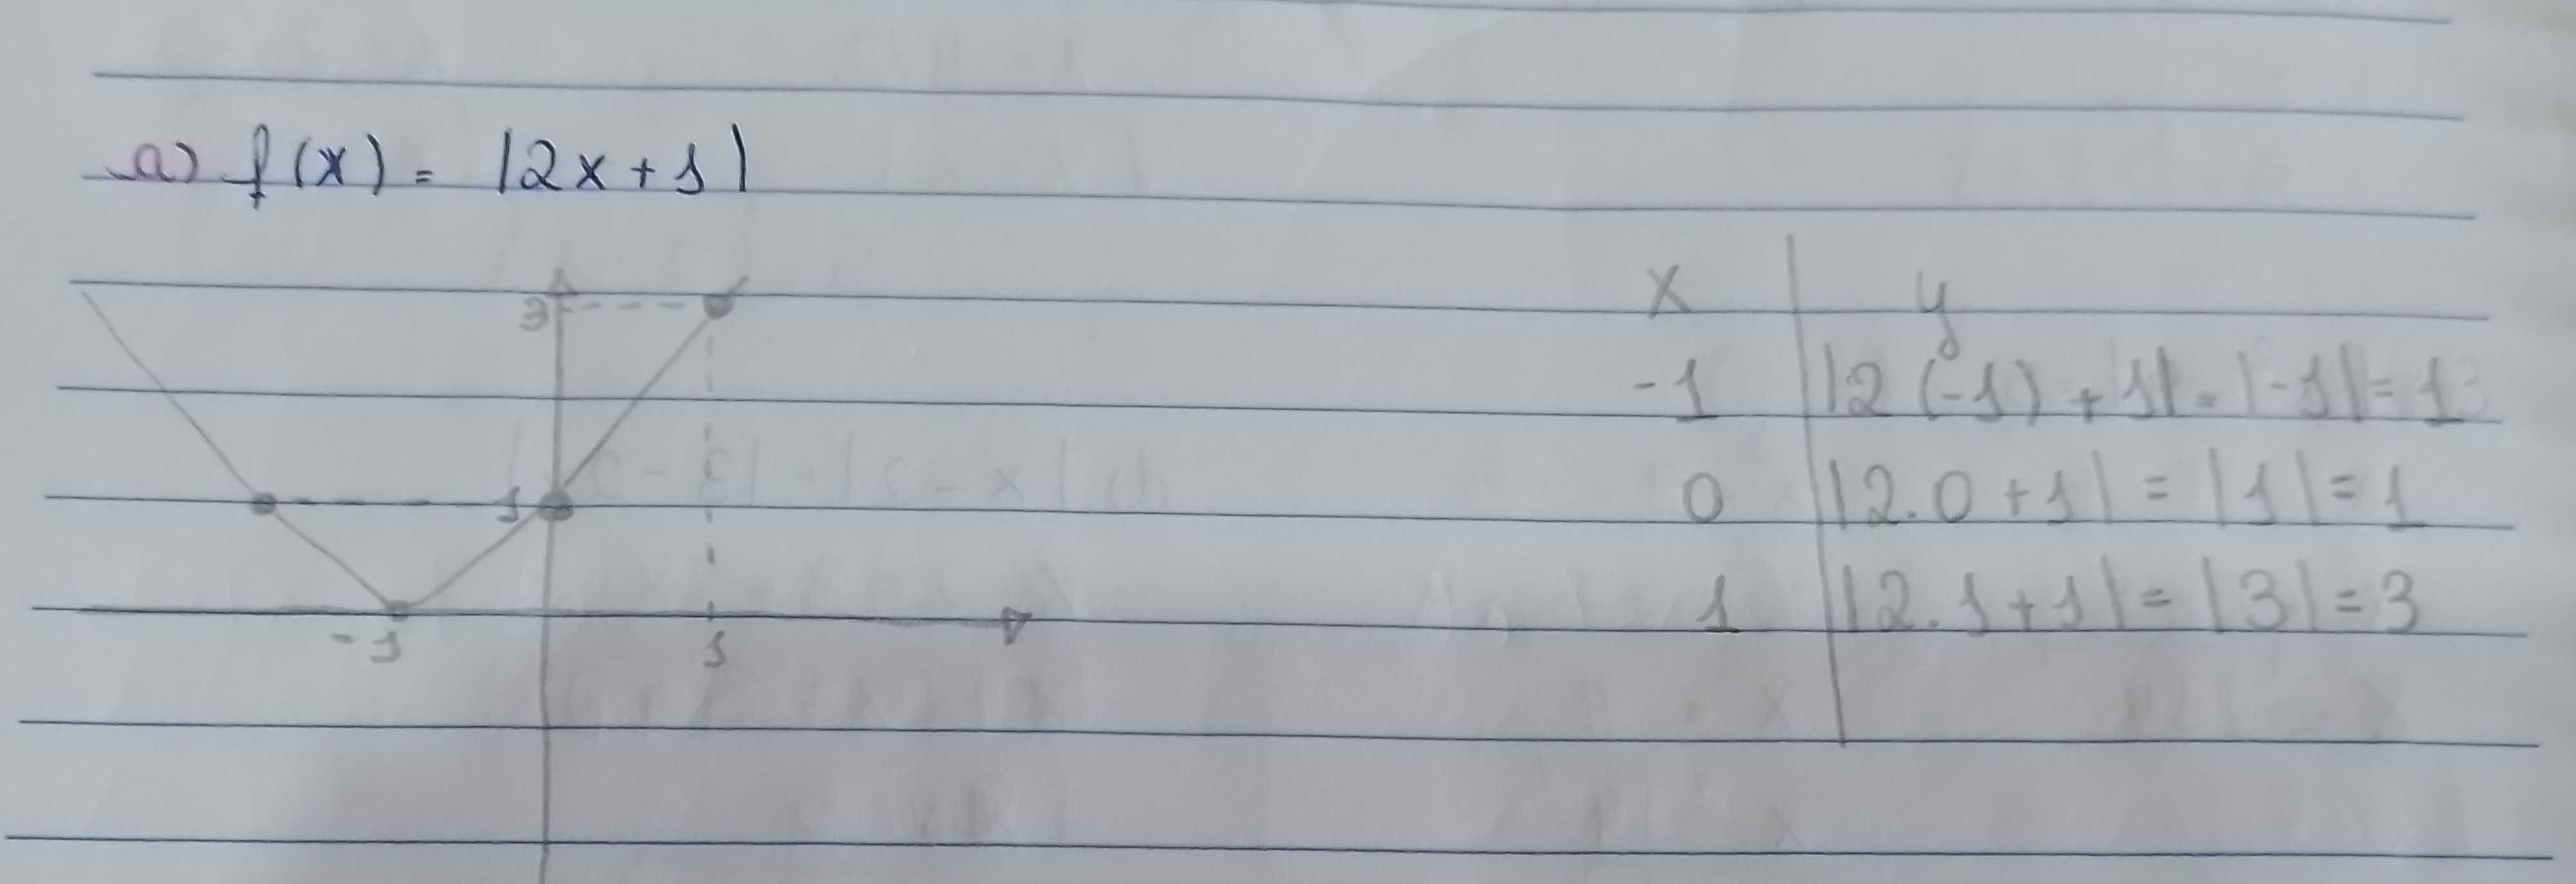 a) f(x) = |2x+1|
3
1
-1 1
x y
-1 |2(-1)+1| = |-1| = 1
0 |2.0+1| = |1| = 1
1 |2.1+1| = |3| = 3